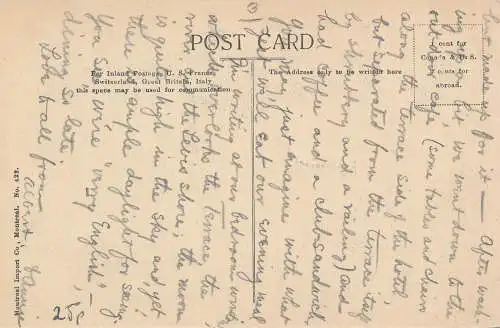 POST CARD
For Inland Postage, U. S. France,
Switzerland, Great Britain, Italy
this space may be used for communication
The Address only to be written here
1 cent for
Can'a & U. S.
2 cents for
abroad.
Montreal Import Co., Montreal. No. 422.
but made up for it — After wash-
ing up a bit we went down to the
out-door cafe (some tables and chairs
along the terrace side of the hotel,
but separated from the terrace itself
by shrubbery and a railing) and
had coffee and a club-sandwich.
You may just imagine with what
we'll eat our evening meal
I'm writing at our bedroom window
which overlooks the terrace, the
river, the Levis shore; the moon
is quite high in the sky and yet
there's ample daylight for
You see we're "very English" —
dining so late.
Love to all from
25c